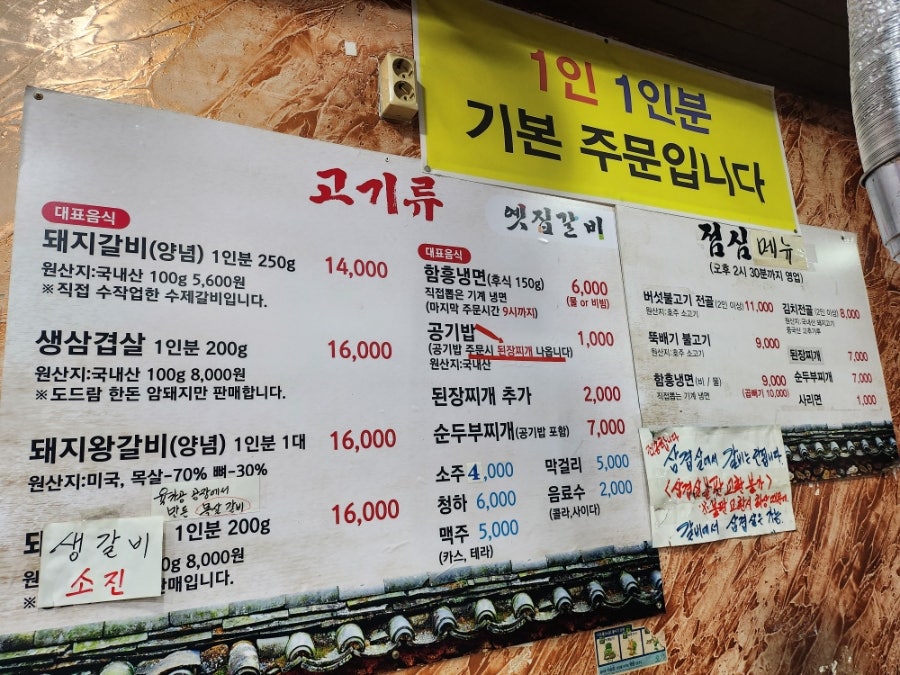 1인 1인분
기본 주문입니다
고기류
옛집갈비
대표음식
돼지갈비(양념) 1인분 250g 14,000
원산지:국내산 100g 5,600원
※직접 수작업한 수제갈비입니다.
생삼겹살 1인분 200g 16,000
원산지:국내산 100g 8,000원
※도드람 한돈 암돼지만 판매합니다.
돼지왕갈비(양념) 1인분 1대 16,000
원산지:미국, 목살-70% 뼈-30%
목살 갈비
1인분 200g 16,000
생갈비
소진
8,000원
매입니다.
대표음식
함흥냉면(후식 150g) 6,000
직접뽑은 기계 냉면 (물 or 비빔)
(마지막 주문시간 9시까지)
공기밥 1,000
(공기밥 주문시 된장찌개 나옵니다)
원산지:국내산
된장찌개 추가 2,000
순두부찌개(공기밥 포함) 7,000
소주 4,000
청하 6,000
맥주 5,000
(카스, 테라)
막걸리 5,000
음료수 2,000
(콜라,사이다)
점심 메뉴
(오후 2시 30분까지 영업)
버섯불고기 전골(2인 이상) 11,000
원산지:호주 소고기
뚝배기 불고기 9,000
원산지:호주 소고기
함흥냉면(비 / 물) 9,000
직접뽑는 기계 냉면 (곱빼기 10,000)
김치전골(2인 이상) 8,000
원산지:국내산 돼지고기
중국산 고추가루
된장찌개 7,000
순두부찌개 7,000
사리면 1,000
삼겹살에서 갈비는 안됩니다.
갈비에서 삼겹살은 가능